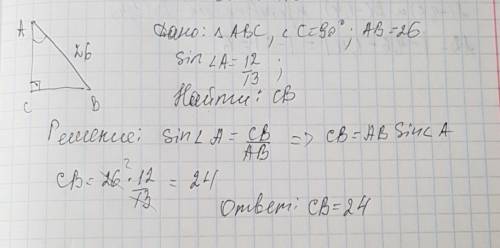 A
26
C
B
Дано: △ABC, ∠C=90°; AB=26
Sin∠A=12/13;
Найти: CB
Решение: Sin∠A=CB/AB => CB=AB Sin∠A
CB=26²·12/13=24
Ответ: CB=24